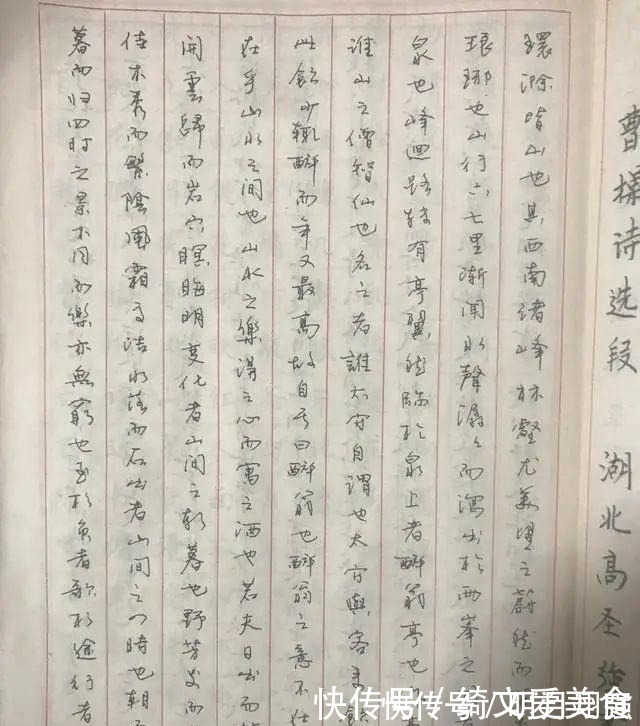 曹操诗选段 湖北高圣
環滁皆山也其西南诸峰林壑尤美望之蔚然而
琅琊也山行六七里渐闻水聲潺々而瀉出於两峯之
泉也峰迴路转有亭翼然臨於泉上者醉翁亭也
谁山之僧智仙也名之者誰太守自謂也太守與客来飲
此飲少輒醉而年又最高故自号曰醉翁也醉翁之意不
在乎山水之间也山水之樂得之心而寓之酒也若夫日出而
開雲歸而岩穴暝晦明变化者山间之朝暮也野芳发而
佳木秀而繁陰風霜高洁水落而石出者山间之四時也朝
暮而归四时之景不同而樂亦無窮也至於负者歌於途行者
快传号/绮文爱美食